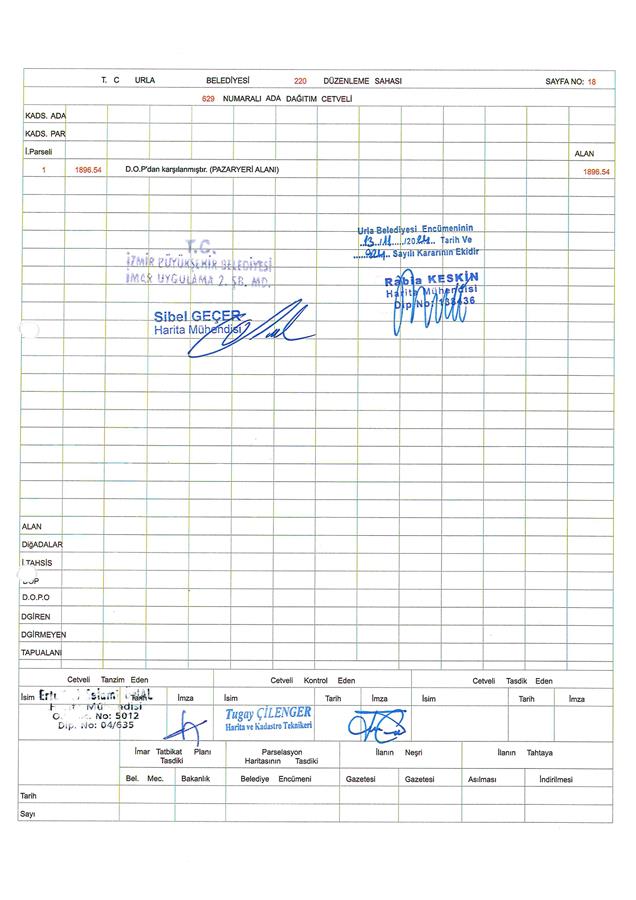 T. C URLA BELEDİYESİ 220 DÜZENLEME SAHASI SAYFA NO: 18
629 NUMARALI ADA DAĞITIM CETVELİ
KADS. ADA
KADS. PAR
İ.Parseli ALAN
1 1896.54 D.O.P'dan karşılanmıştır. (PAZARYERİ ALANI) 1896.54
Urla Belediyesi Encümeninin
13/11/2024 Tarih Ve
924 Sayılı Kararının Ekidir
T.C.
İZMİR BÜYÜKŞEHİR BELEDİYESİ
İMAR UYGULAMA 2. ŞB. MD.
Rabia KESKİN
Harita Mühendisi
Dip No:
Sibel GEÇER
Harita Mühendisi
ALAN
DiğADALAR
İ.TAHSİS
D.O.P.O
DGİREN
DGİRMEYEN
TAPUALANI
Cetveli Tanzim Eden Cetveli Kontrol Eden Cetveli Tasdik Eden
İsim Tarih İmza İsim Tarih İmza İsim Tarih İmza
No: 5012
Dip. No: 04/635
Tugay ÇİLENGER
Harita ve Kadastro Teknikeri
İmar Tatbikat Planı Tasdiki Parselasyon Haritasının Tasdiki İlanın Neşri İlanın Tahtaya
Bel. Mec. Bakanlık Belediye Encümeni Gazetesi Gazetesi Asılması İndirilmesi
Tarih
Sayı